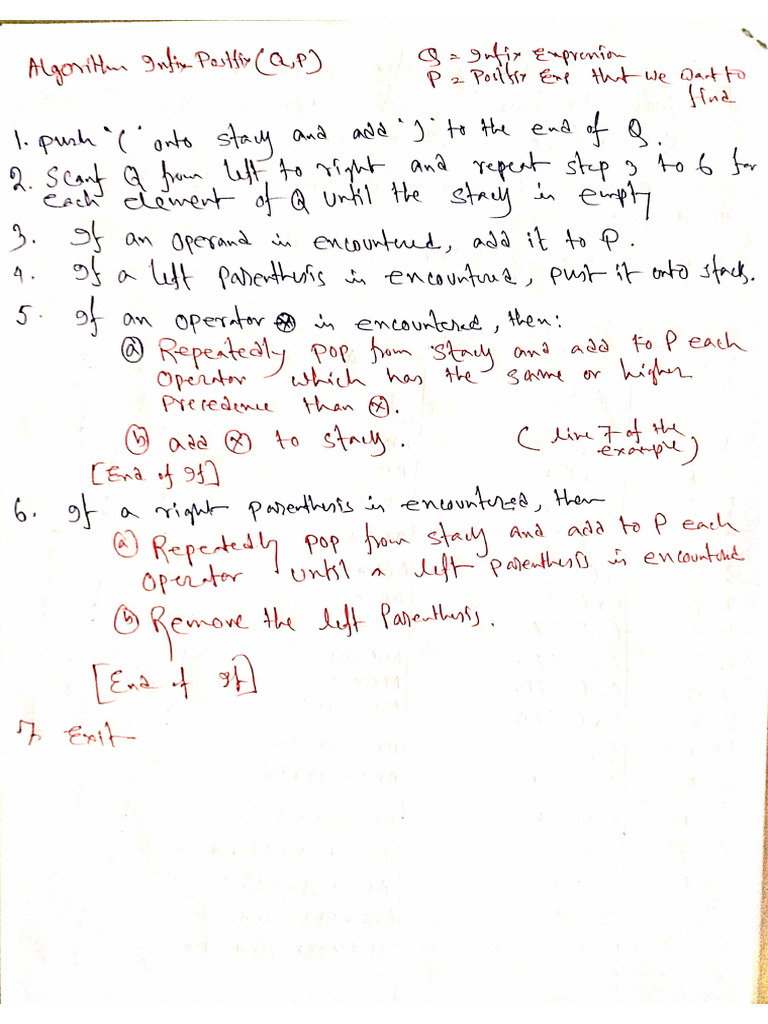 Algorithm InfixPostfix(Q,P)
Q = Infix Expression
P = Postfix Exp that we want to
find
1. push "(" onto stack and add ")" to the end of Q.
2. Scanf Q from left to right and repeat step 3 to 6 for
each element of Q until the stack is empty
3. If an operand is encountered, add it to P.
4. If a left parenthesis is encountered, push it onto stack.
5. If an operator ⊗ is encountered, then:
(a) Repeatedly pop from stack and add to P each
operator which has the same or higher
Precedence than ⊗.
(b) add ⊗ to stack.
(line 7 of the
example)
[End of If]
6. If a right parenthesis is encountered, then
(a) Repeatedly pop from stack and add to P each
operator until a left parenthesis is encountered
(b) Remove the left Parenthesis.
[End of If]
7. Exit